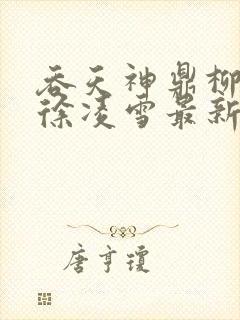 吞天神鼎柳
徐凌雪最新
唐亨瓊